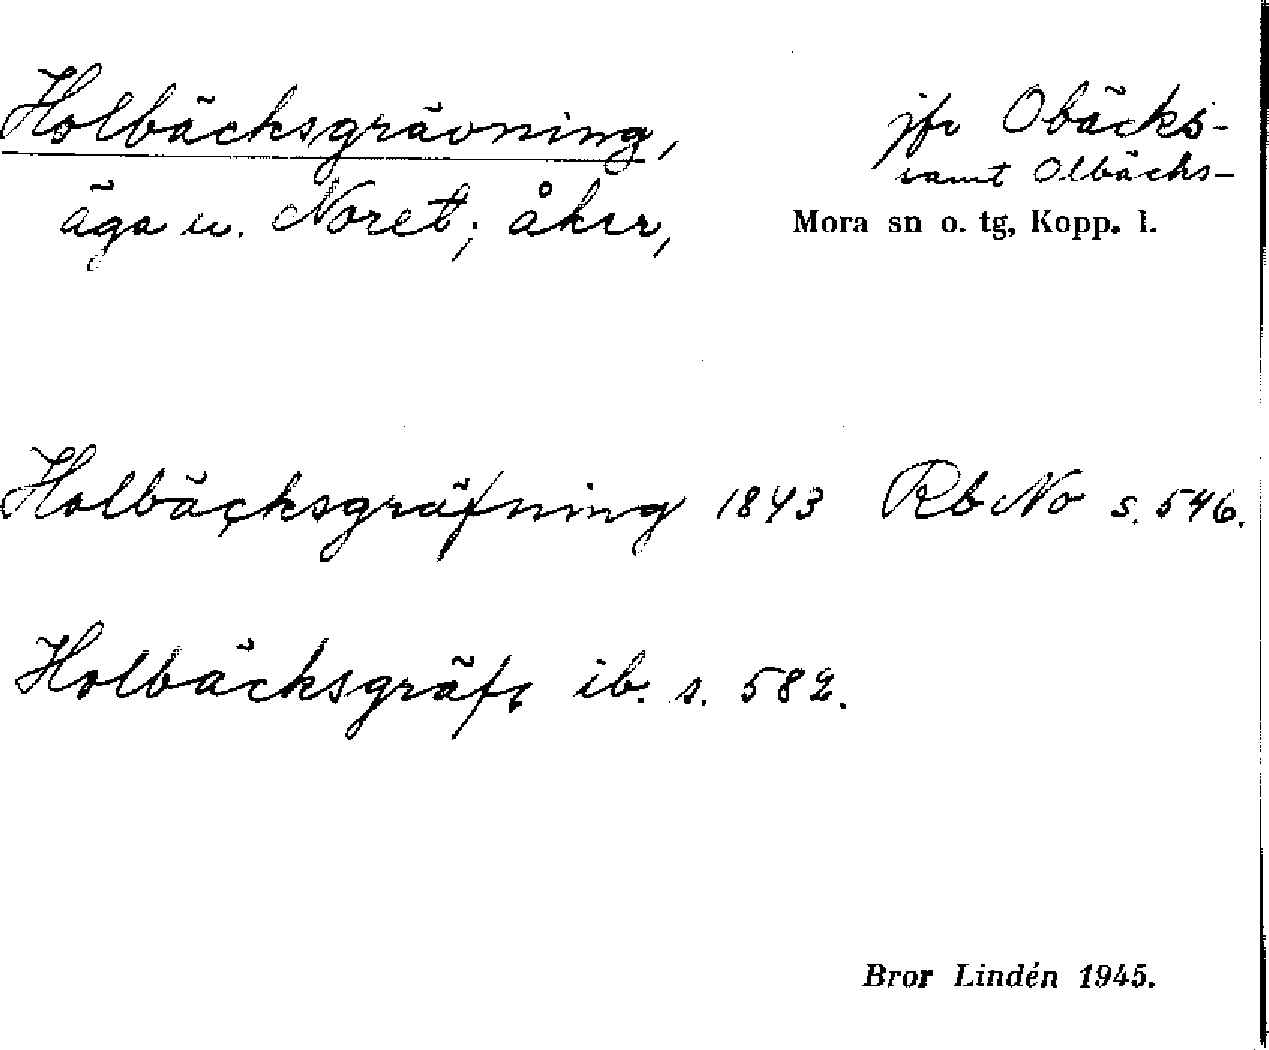 Holbäcksgrävning,
jfr Obäcks-
samt Olbäcks-
äga u. Noret; åker,
Mora sn o. tg, Kopp. l.
Holbäcksgräfning 1843 RbNo s. 546.
Holbäcksgräfs ib. s. 582.
Bror Lindén 1945.